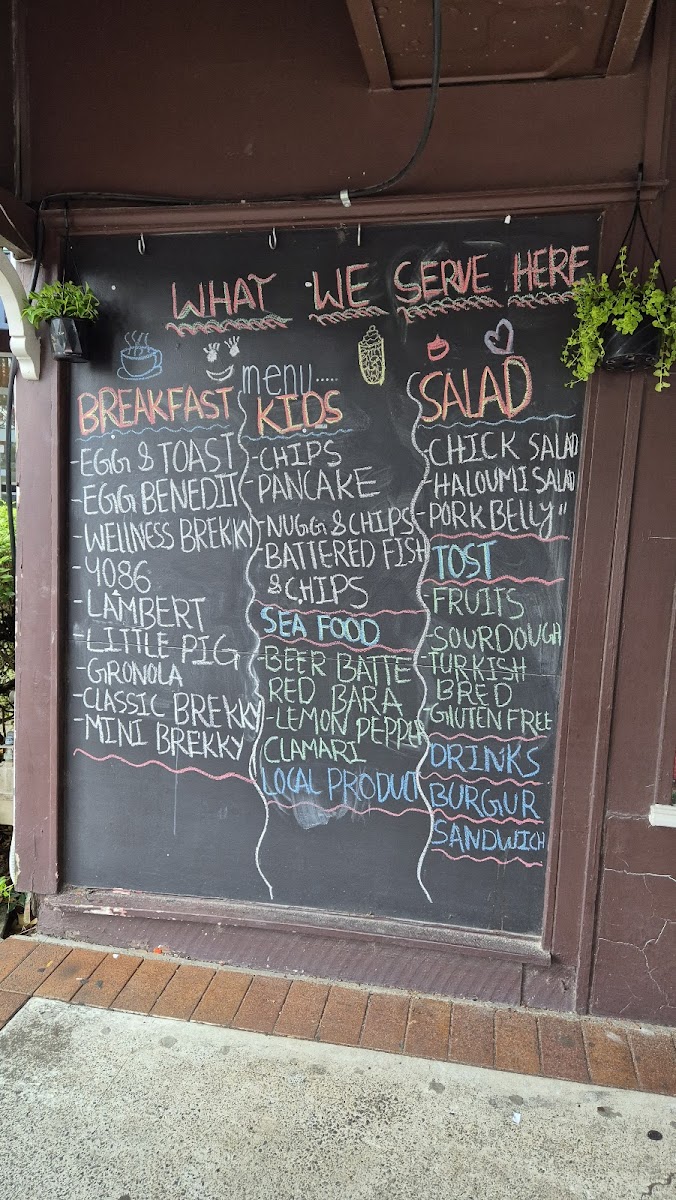 WHAT WE SERVE HERE
menu.....
BREAKFAST
-EGG & TOAST
-EGG BENEDIT
-WELLNESS BREKKY
-4086
-LAMBERT
-LITTLE PIG
-GRONOLA
-CLASSIC BREKKY
-MINI BREKKY
KIDS
-CHIPS
-PANCAKE
-NUGG & CHIPS
-BATTERED FISH
& CHIPS
SEA FOOD
-BEER BATTE
RED BARA
-LEMON PEPPER
CLAMARI
LOCAL PRODUCT
SALAD
-CHICK SALAD
-HALOUMI SALAD
-PORK BELLY "
TOST
-FRUITS
-SOURDOUGH
-TURKISH
BRED
-GLUTEN FREE
DRINKS
BURGUR
SANDWICH